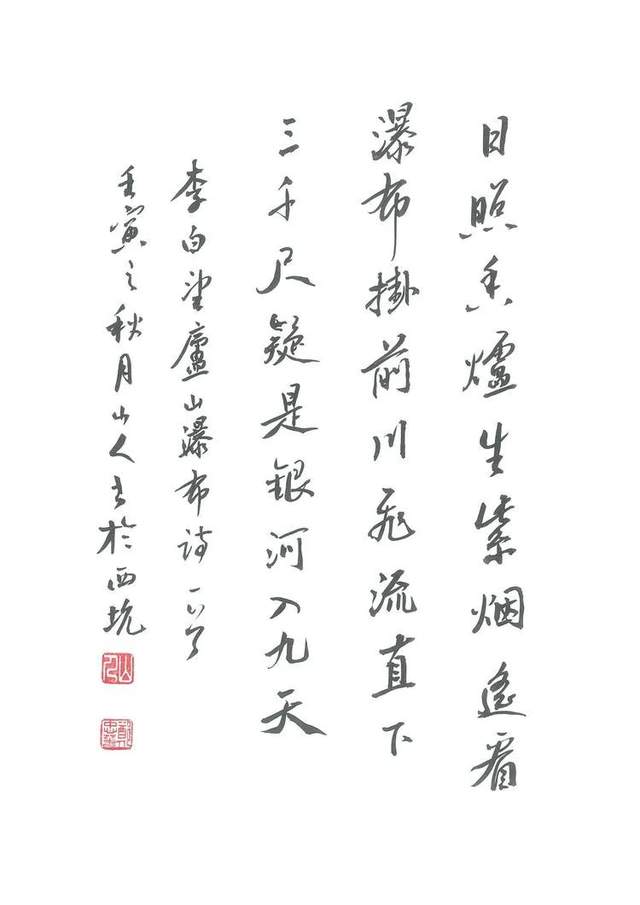 日照香爐生紫烟遙看
瀑布掛前川飛流直下
三千尺疑是銀河入九天
李白望廬山瀑布詩一首
壬寅之秋月山人書於西坑
山人